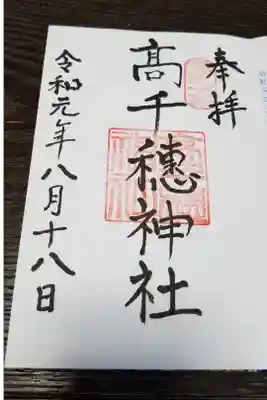 奉拝
髙千穗神社
令和元年八月十八日